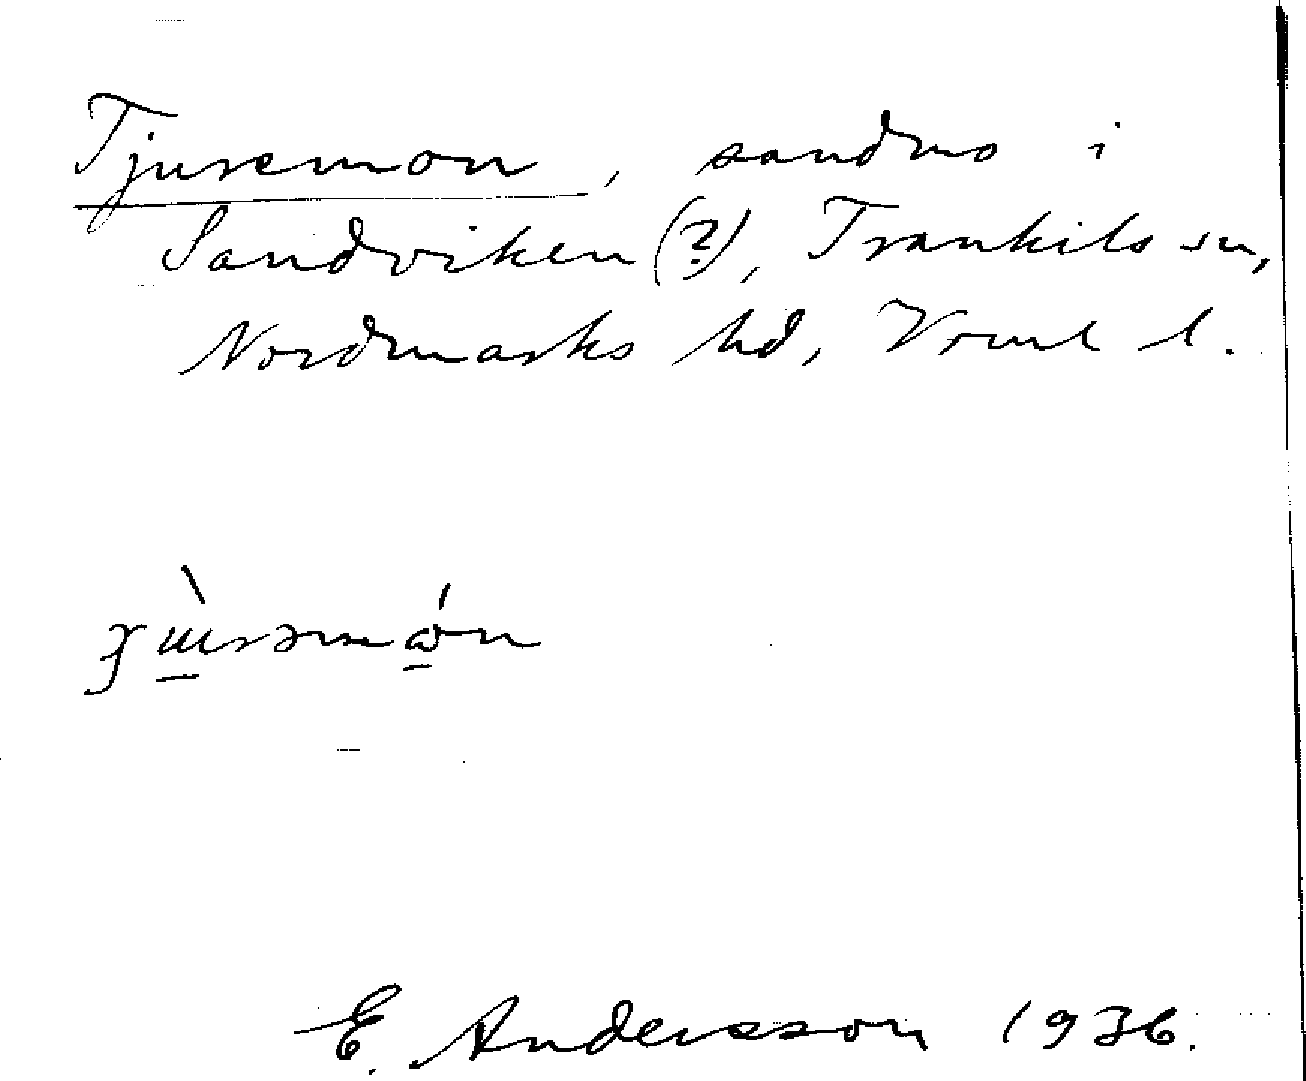 Tjuremon, sandmo i
Sandviken (?), Trankils sn,
Nordmarks hd, Vrml l.
E. Andersson 1936.